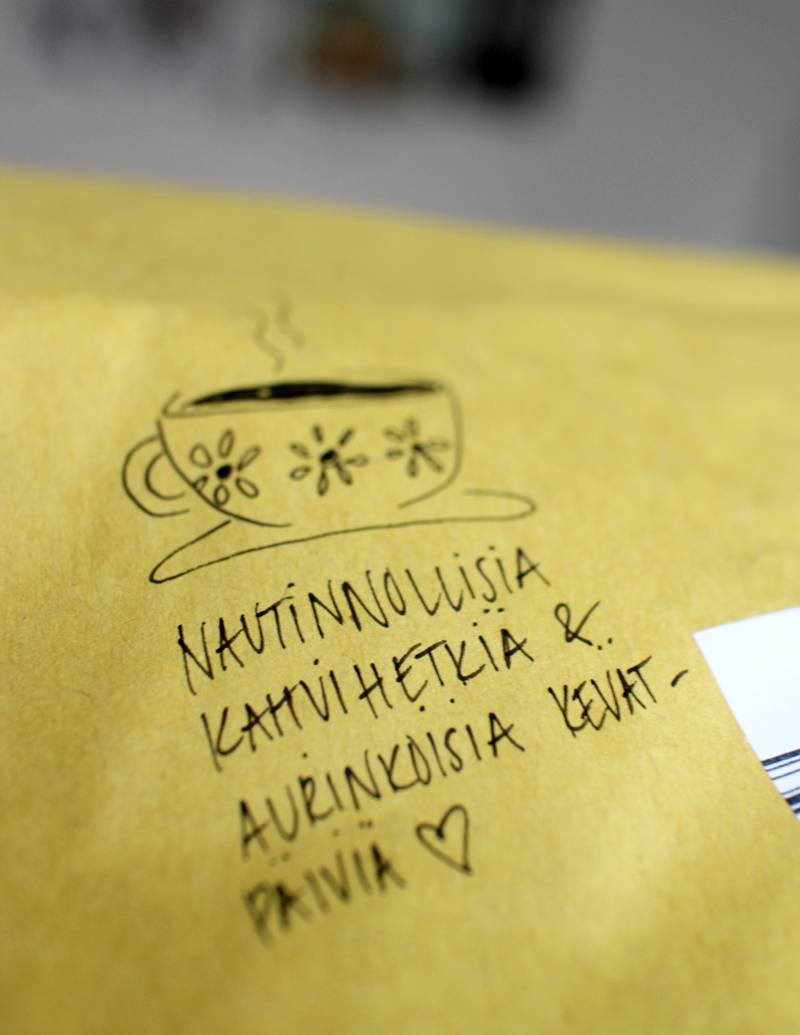 NAUTINNOLLISIA
KAHVIHETKIÄ &
AURINKOISIA KEVÄT-
PÄIVIÄ ♡